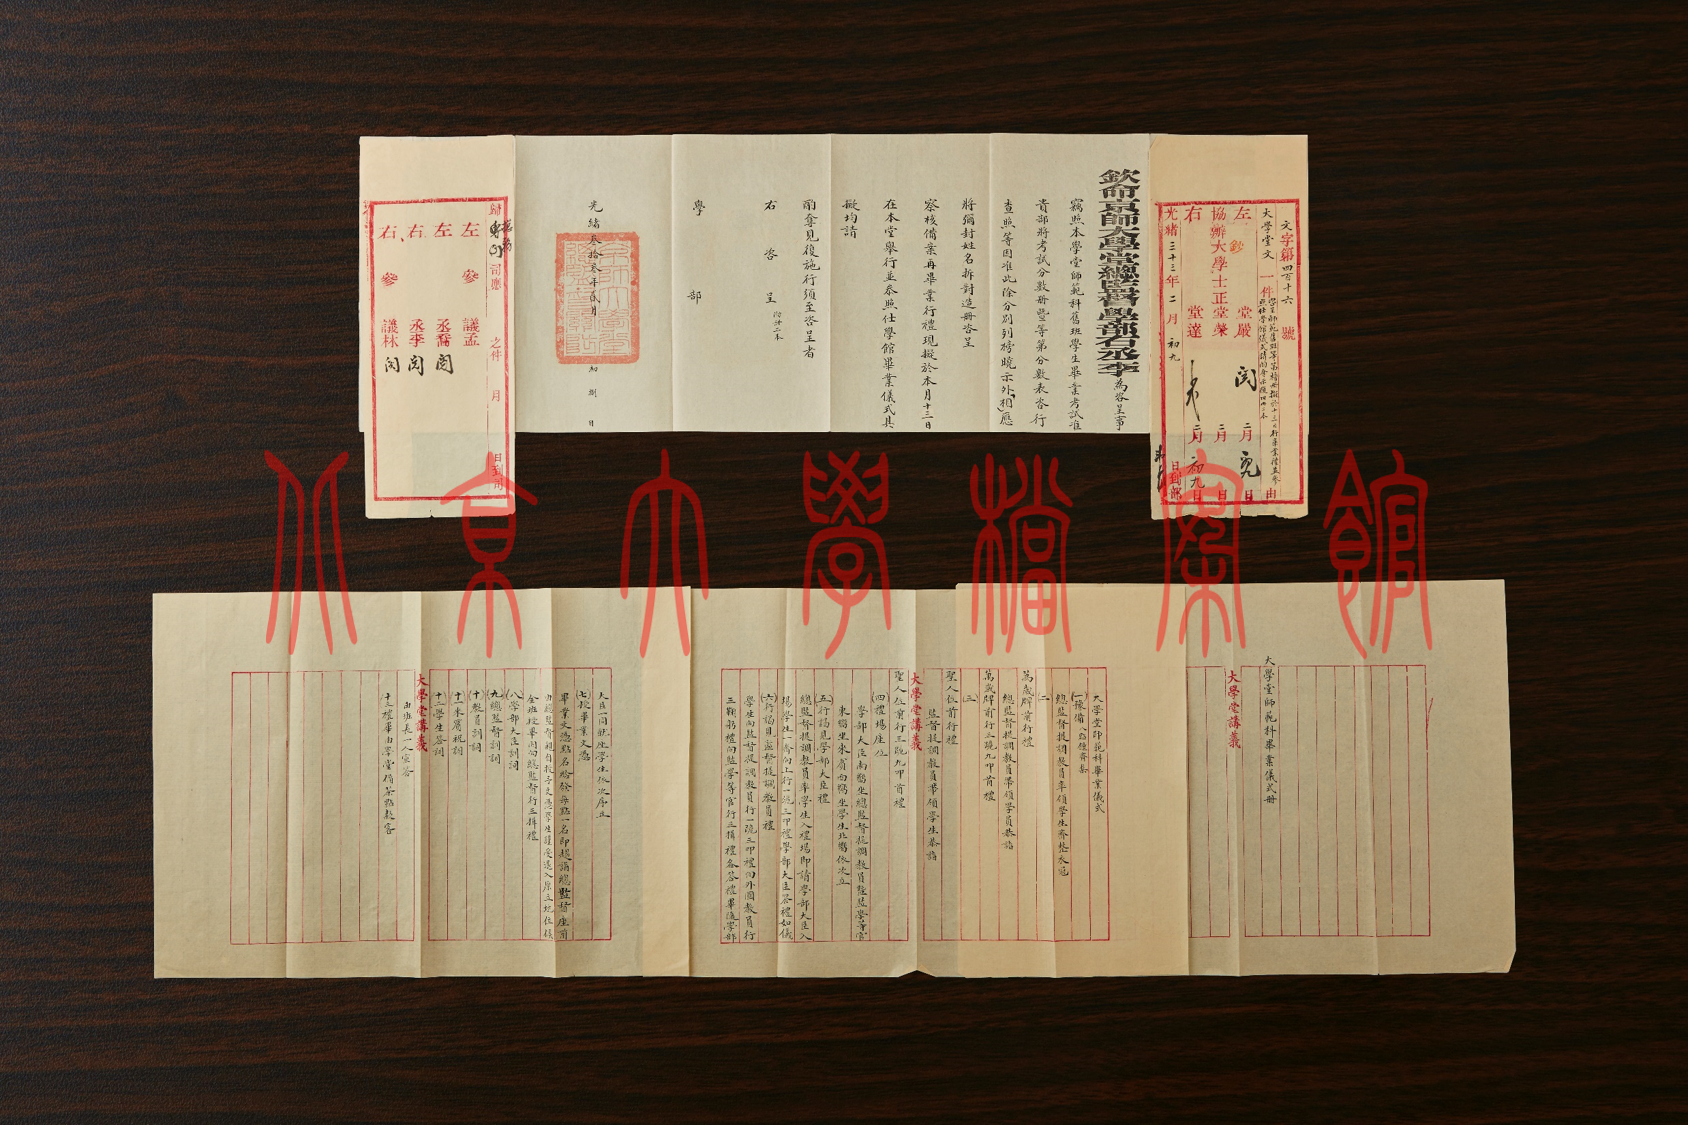 文字第四百十六號
大學堂文一件
由
左堂嚴
二月
日
協辦大學士正堂榮
二月
日
右堂達
二月初九日
光緒三十三年二月初九
日到部
欽命京師大學堂總監督學部右丞李為咨呈事
竊照本學堂師範科舊班學生畢業考試准
貴部將考試分數冊暨等第分數表咨行
查照等因准此除分別列榜曉示外相應
將彌封姓名拆對造冊咨呈
察核備案再畢業行禮現擬於本月十三日
在本堂舉行並參照仕學館畢業儀式具
擬均請
酌奪見復施行須至咨呈者
右咨呈
附冊二本
學部
光緒叁拾叁年貳月
初捌日
歸
司應
之件
月
日到司
左參議孟
左丞喬
右丞李
右參議林
北京大學檔案館
大學堂師範科畢業儀式冊
大學堂講義
大學堂師範科畢業儀式
(一)豫備八點鐘齊集
總監督提調教員率領學生齊整衣冠
二
萬歲牌前行禮
總監督提調教員帶領學員恭詣
萬歲牌前行三跪九叩首禮
(三)
聖人位前行禮
監督提調教員帶領學生恭詣
大學堂講義
聖人位前行三跪九叩首禮
(四)禮場座位
學部大臣南嚮坐總監督提調教員暨監學等官
東嚮坐來賓西嚮坐學生北嚮依次立
(五)行謁見學部大臣禮
總監督提調教員率學生入禮場即請學部大臣入
場學生一齊向上行一跪三叩禮學部大臣答禮如儀
(六)行謁見監督提調教員禮
學生向監督提調教員行一跪三叩禮向外國教員行
三鞠躬禮向監學等官行三揖禮各答禮畢隨學部
大臣一同就座學生依次序立
(七)授畢業文憑
畢業文憑點名給發每點一名即趨詣總監督座前
由總監督親自授予文憑學生謹受退入原立地位俟
全班授畢同向總監督行三揖禮
(八)學部大臣訓詞
(九)總監督訓詞
(十)教員訓詞
(十一)來賓祝詞
(十二)學生答詞
大學堂講義
由班長一人宣答
十三禮畢由學堂備茶點款客